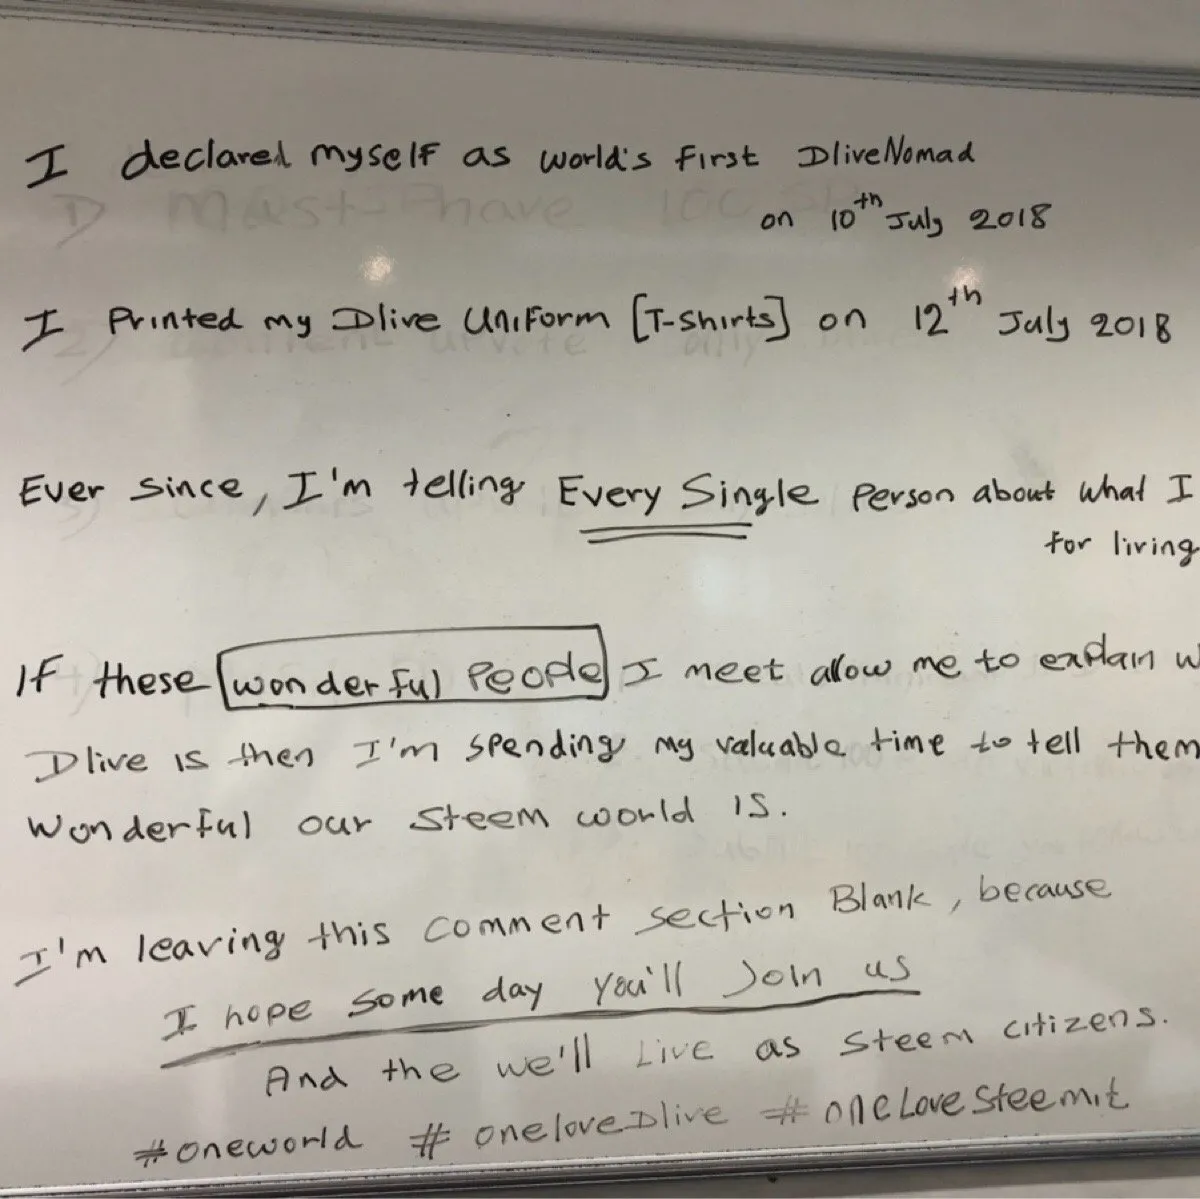 I declared myself as world's first DliveNomad
on 10th July 2018
I Printed my Dlive Uniform [T-Shirts] on 12th July 2018
Ever since, I'm telling Every Single Person about what I
for living
If these wonderful People I meet allow me to explain
Dlive is then I'm spending my valuable time to tell them
Wonderful our Steem world is.
I'm leaving this comment section Blank, because
I hope some day you'll Join us
And the we'll Live as Steem citizens.
#oneworld #oneloveDlive #oneLoveSteemit